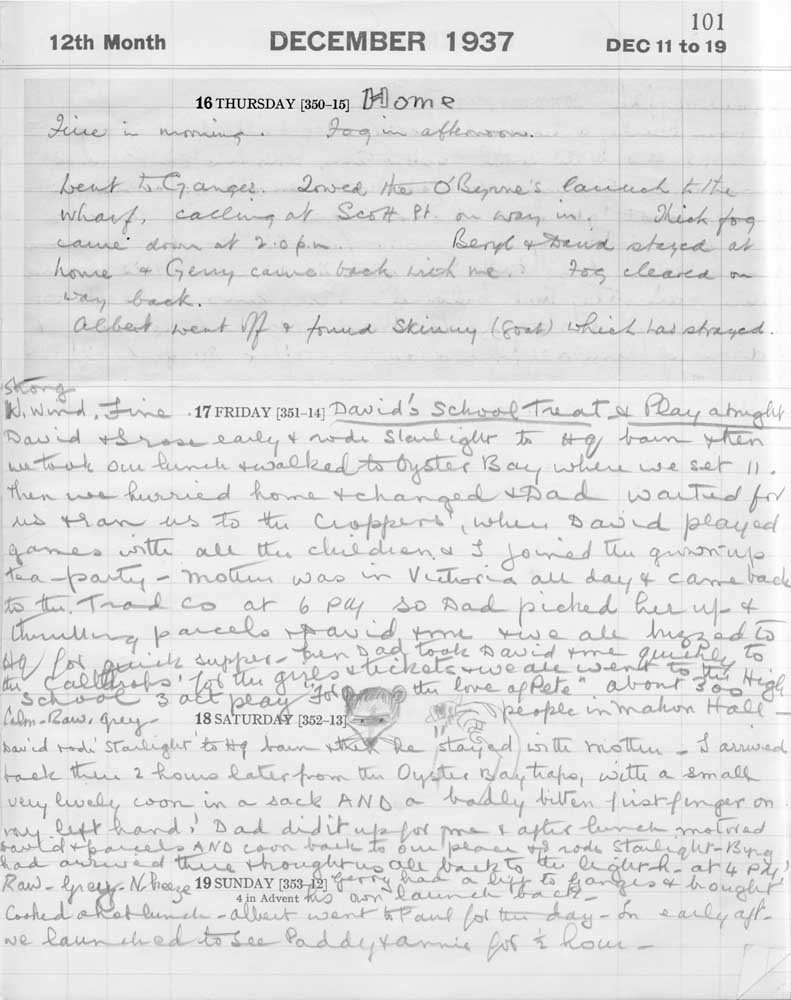 101
12th Month DECEMBER 1937 DEC 11 to 19
16 THURSDAY [350–15] Home
Fine in morning. Fog in afternoon.
Went to Ganges. Towed the O'Byrne's launch to the
wharf, calling at Scott Pt. on way in. Thick fog
came down at 2.0 p.m. Beryl & David stayed at
home & Gerry came back with me. Fog cleared on
way back.
Albert went off & found Skinny (goat) which has strayed.
Strong
N. Wind, Fine. 17 FRIDAY [351–14] David's School Treat & Play at night
David & I rose early & rode Starlight to Hq barn & then
we took our lunch & walked to Oyster Bay where we set 11.
Then we hurried home & changed & Dad waited for
us & ran us to the Croppers', where David played
games with all the children & I joined the grownup
tea-party – Mother was in Victoria all day & came back
to the Trad Co at 6 PM so Dad picked her up &
thrilling parcels & David & me & we all buzzed to
Hq for quick supper – then Dad took David & me quickly to
the 'Callthrops' for the girls & tickets & we all went to the High
School 3 act play "For the love of Pete" about 300
people in Mahon Hall –
Calm – Raw, grey – 18 SATURDAY [352–13]
David rode 'Starlight' to Hq barn & then he stayed with Mother – I arrived
back there 2 hours later from the Oyster Bay traps, with a small
very lively coon in a sack AND a badly bitten first finger on
my left hand! Dad did it up for me & after lunch motored
David & parcels AND coon back to our place & I rode Starlight –
had arrived there & brought us all back to the light h– at 4 PM!
Raw – Grey – N. breeze 19 SUNDAY [353–12] Gerry had a lift to Ganges & brought
4 in Advent his own launch back –
Cooked a hot lunch – Albert went to Paul for the day – In early aft–
we launched to see Paddy & Annie for ½ hour –